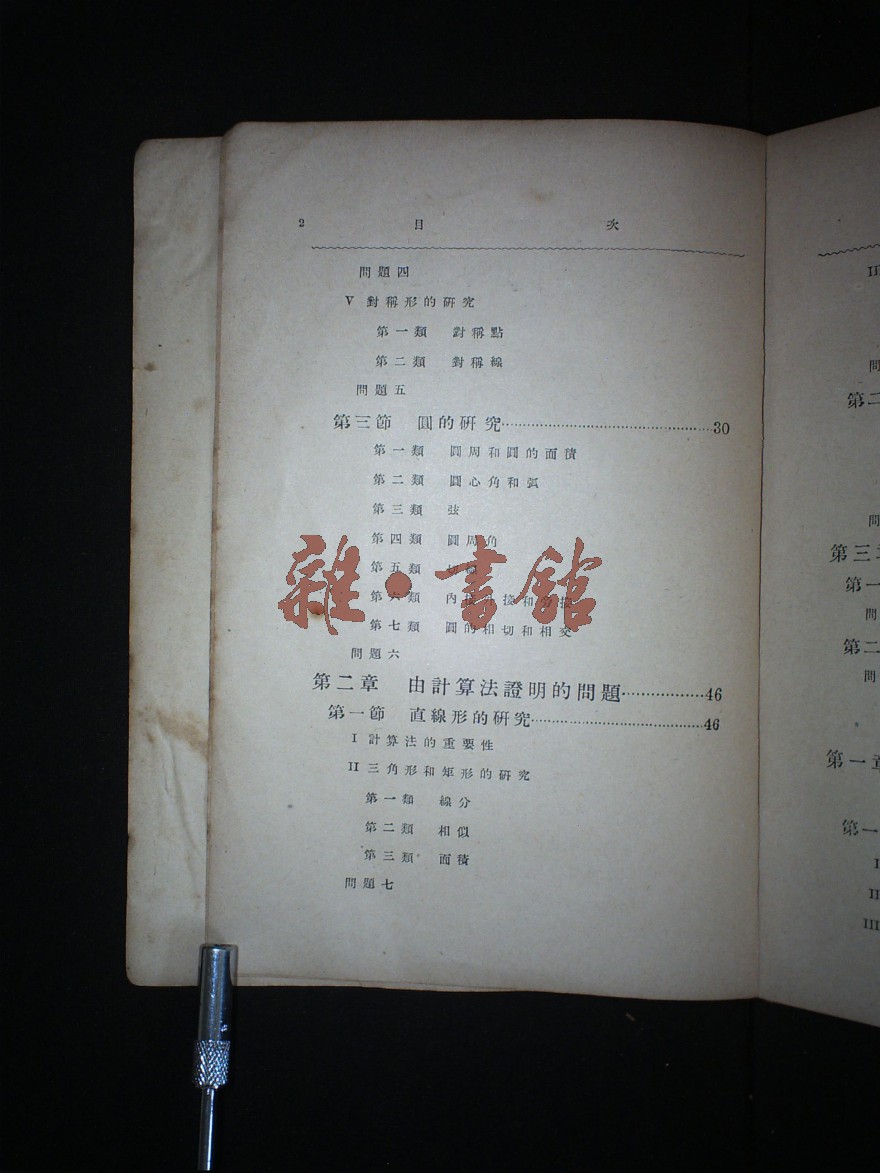 2 目 次
問題四
V 對稱形的研究
第一類 對稱點
第二類 對稱線
問題五
第三節 圓的研究……30
第一類 圓周和圓的面積
第二類 圓心角和弧
第三類 弦
第四類 圓周角
第五類 切線
第六類 內接外接和旁接
第七類 圓的相切和相交
問題六
第二章 由計算法證明的問題……46
第一節 直線形的研究……46
I 計算法的重要性
II 三角形和矩形的研究
第一類 線分
第二類 相似
第三類 面積
問題七
雜·書館
II
問
第二
問
第三
第一
問
第二
問
第一章
第一
I
II
III